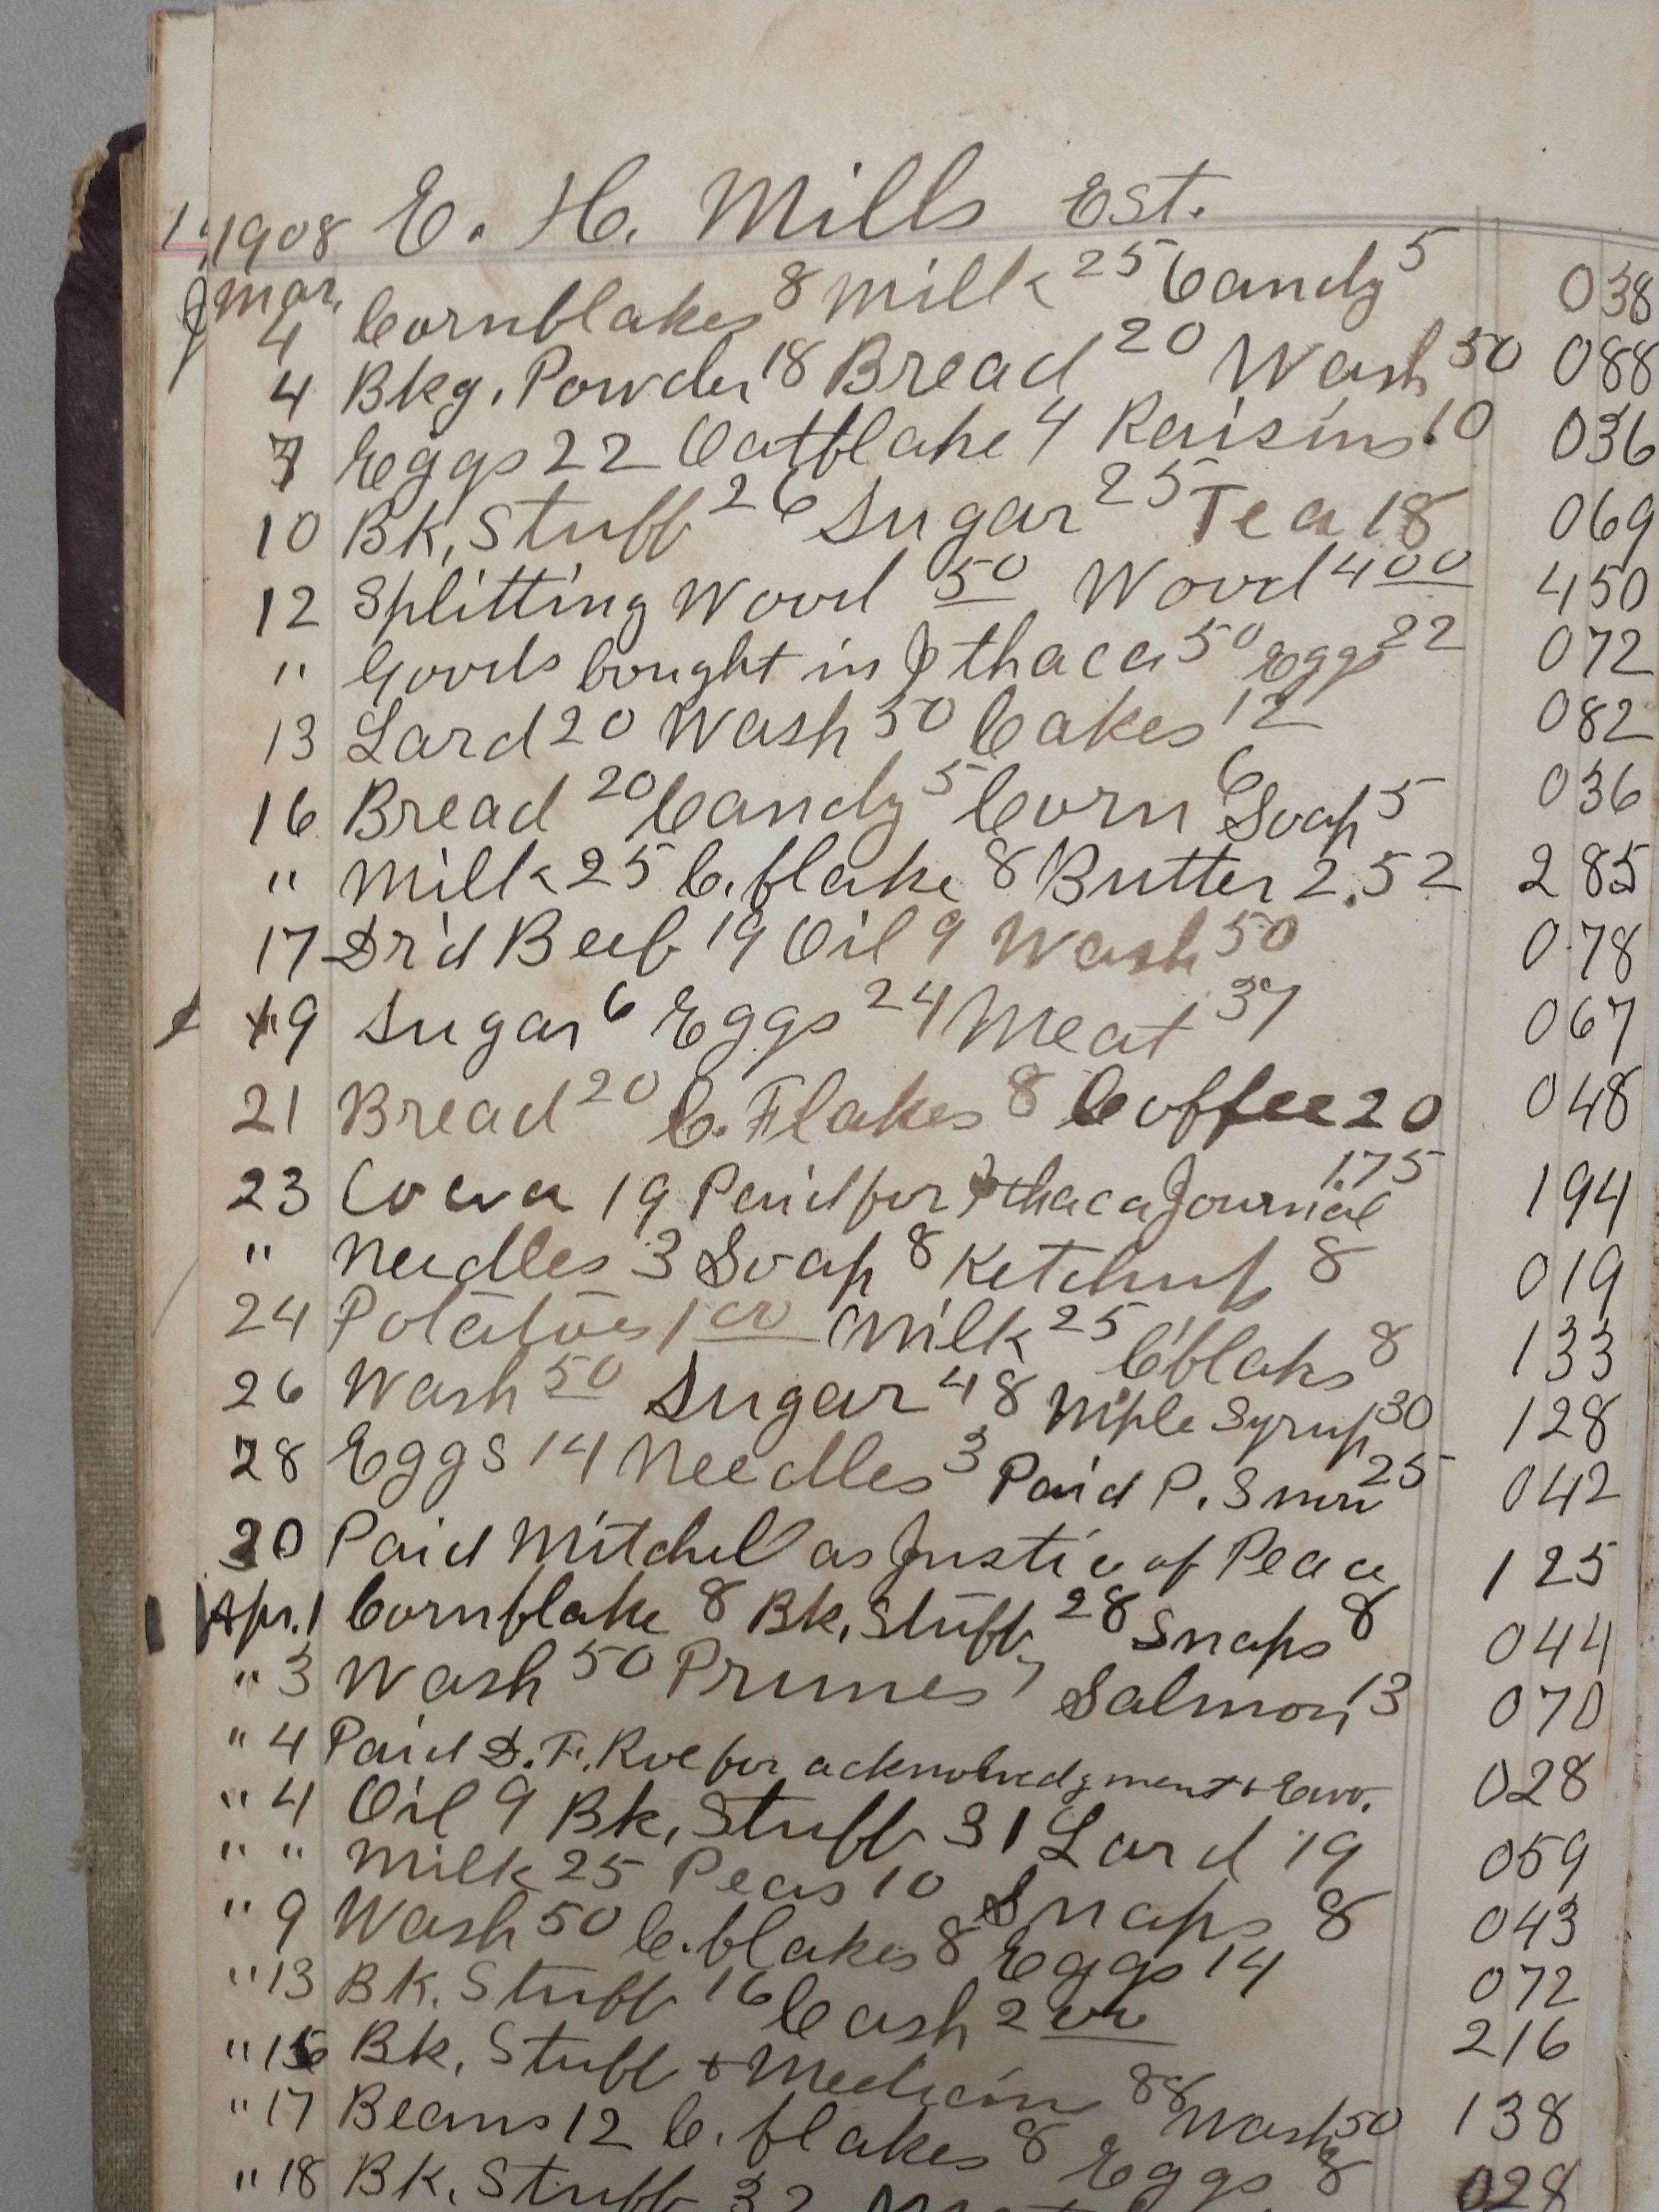 1908 E. H. Mills Est.
Mar.
4 Cornflakes 8 Milk 25 Candy 5 038
4 Bkg. Powder 18 Bread 20 Wash 50 088
7 Eggs 22 Oatflake 4 Raisins 10 036
10 Bk. Stuff 26 Sugar 25 Tea 18 069
12 Splitting Wood 50 Wood 4 00 450
" Goods bought in Ithaca 50 Eggs 22 072
13 Lard 20 Wash 50 Cakes 12 082
16 Bread 20 Candy 5 Corn 6 Soap 5 036
" Milk 25 C. flake 8 Butter 2.52 285
17 Dr'd Beef 19 Oil 9 Wash 50 078
19 Sugar 6 Eggs 24 Meat 37 067
21 Bread 20 C. Flakes 8 Coffee 20 048
23 Cocoa 19 Paid for Ithaca Journal 1.75 194
" Needles 3 Soap 8 Ketchup 8 019
24 Potatoes 1 00 Milk 25 C'flaks 8 133
26 Wash 50 Sugar 48 Mple Syrup 30 128
28 Eggs 14 Needles 3 Paid P. Snow 25 042
30 Paid Mitchel as Justic of Peace 125
Apr. 1 Cornflake 8 Bk. Stuff 28 Snaps 8 044
" 3 Wash 50 Prunes 7 Salmon 13 070
" 4 Paid D. F. Roe for acknowledgment + Env. 028
" 4 Oil 9 Bk. Stuff 31 Lard 19 059
" " Milk 25 Peas 10 Snaps 8 043
" 9 Wash 50 C. flakes 8 Eggs 14 072
" 13 Bk. Stuff 16 Cash 2 00 216
" 15 Bk. Stuff + Medicin 88 Wash 50 138
" 17 Beans 12 C. flakes 8 Eggs 8 028
" 18 Bk. Stuff 32